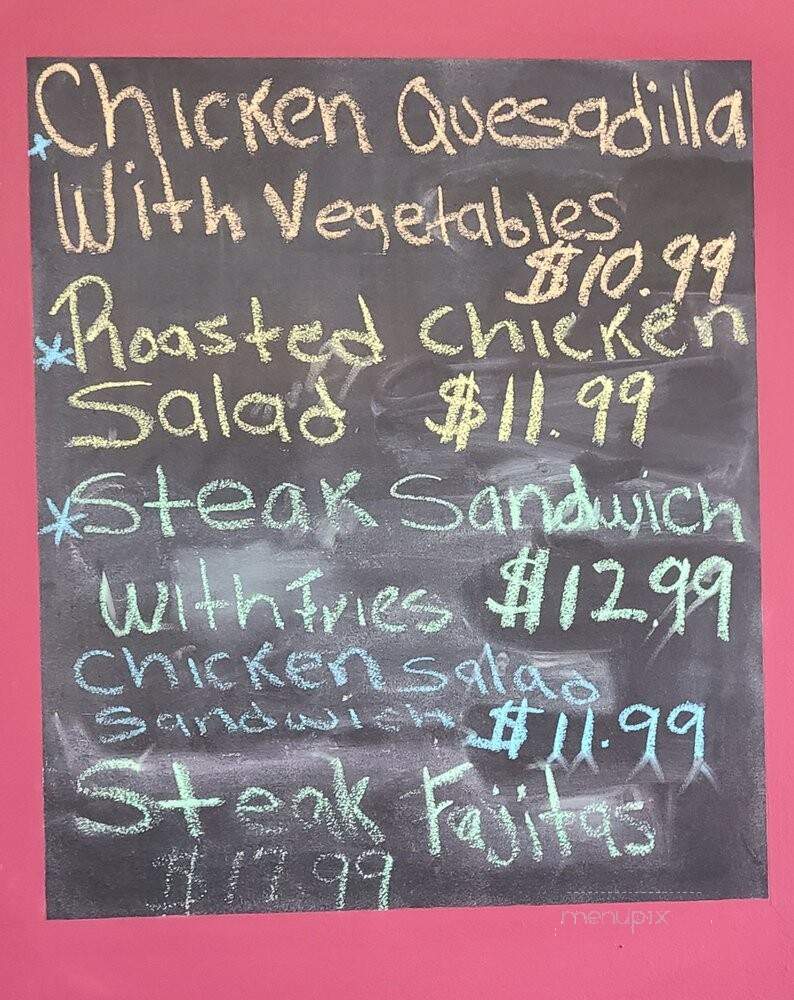 *Chicken Quesadilla
With Vegetables
$10.99
*Roasted chicken
Salad $11.99
*Steak Sandwich
With Fries $12.99
chicken salad
sandwich $11.99
Steak Fajitas
$17.99
menupix